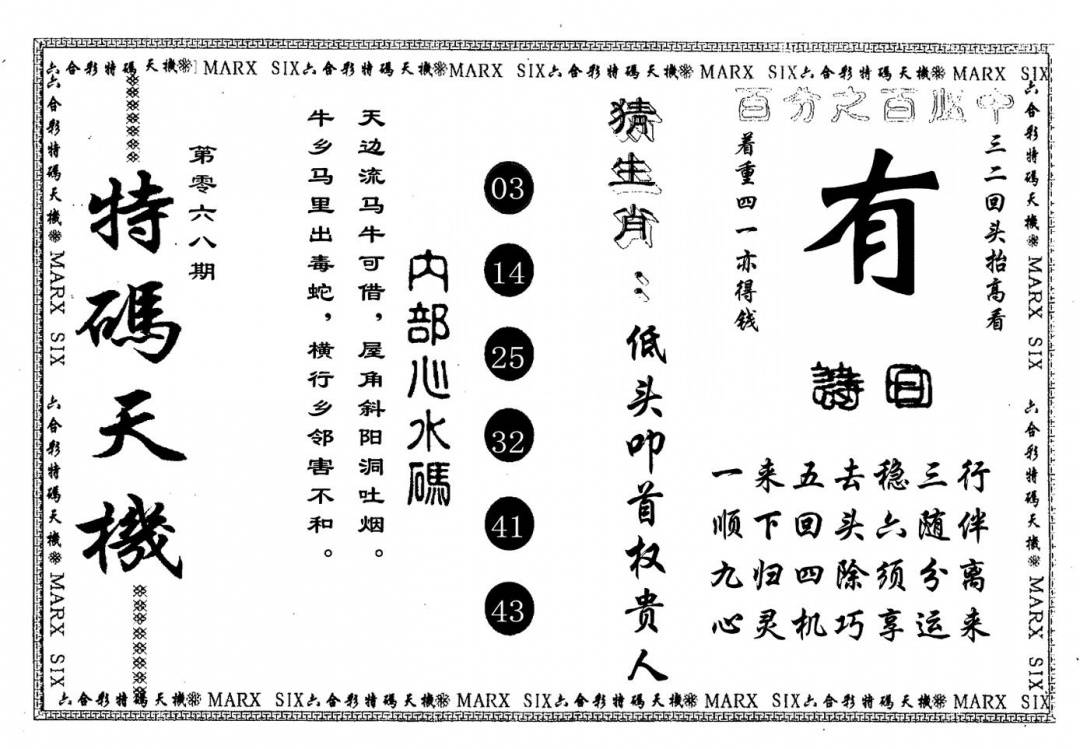 六合彩特碼天機 MARX SIX六合彩特碼天機MARX SIX六合彩特碼天機 MARX SIX六合彩特碼天機 MARX SIX
六合彩特碼天機 MARX SIX 六合彩特碼天機 MARX SIX
特碼天機
第零六八期
天边流马牛可借，屋角斜阳洞吐烟。
牛乡马里出毒蛇，横行乡邻害不和。
内部心水碼
03
14
25
32
41
43
猜生肖：低头叩首权贵人
百分之百必中
三二回头抬高看
有
着重四一亦得钱
詩曰
一来五去稳三行
顺下回头六随伴
九归四除须分离
心灵机巧享运来
六合彩特碼天機 MARX SIX 六合彩特碼天機 MARX SIX
六合彩特碼天機 MARX SIX六合彩特碼天機 MARX SIX六合彩特碼天機 MARX SIX六合彩特碼天機 MARX SIX